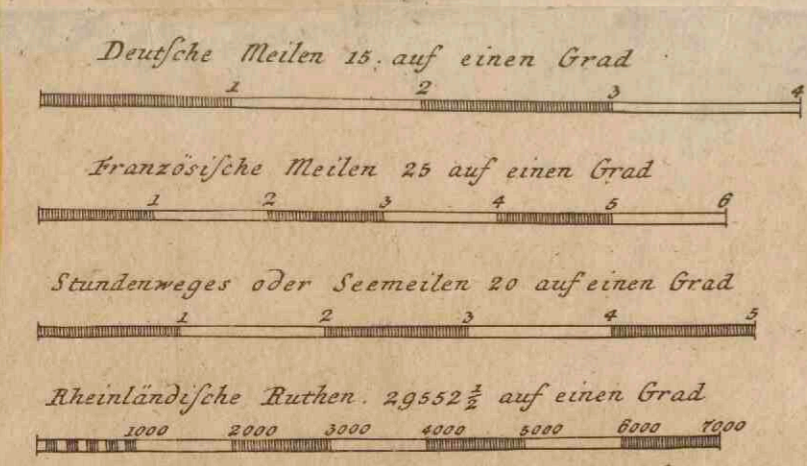 Deutſche Meilen 15. auf einen Grad
1 2 3 4
Französiſche Meilen 25 auf einen Grad
1 2 3 4 5 6
Stundenweges oder Seemeilen 20 auf einen Grad
1 2 3 4 5
Rheinländiſche Ruthen. 29552 ½ auf einen Grad
1000 2000 3000 4000 5000 6000 7000